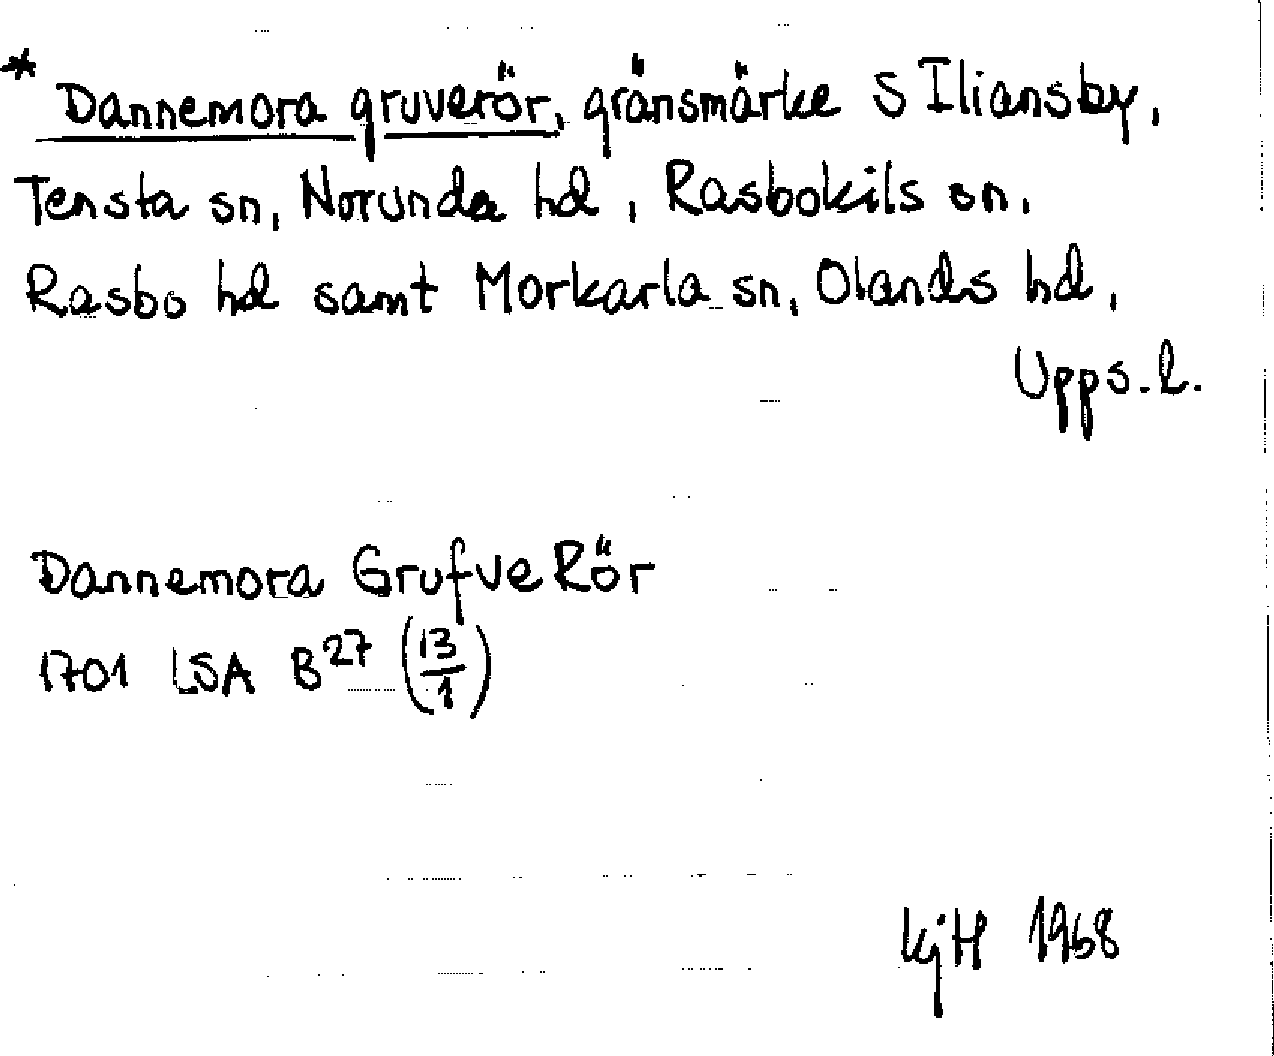 * Dannemora gruverör, gränsmärke S Iliansby,
Tensta sn, Norunda hd, Rasbokils sn,
Rasbo hd samt Morkarla sn, Olands hd,
Upps. l.
Dannemora Grufve Rör
1701 LSA B²⁷ (13/1)
KjH 1968